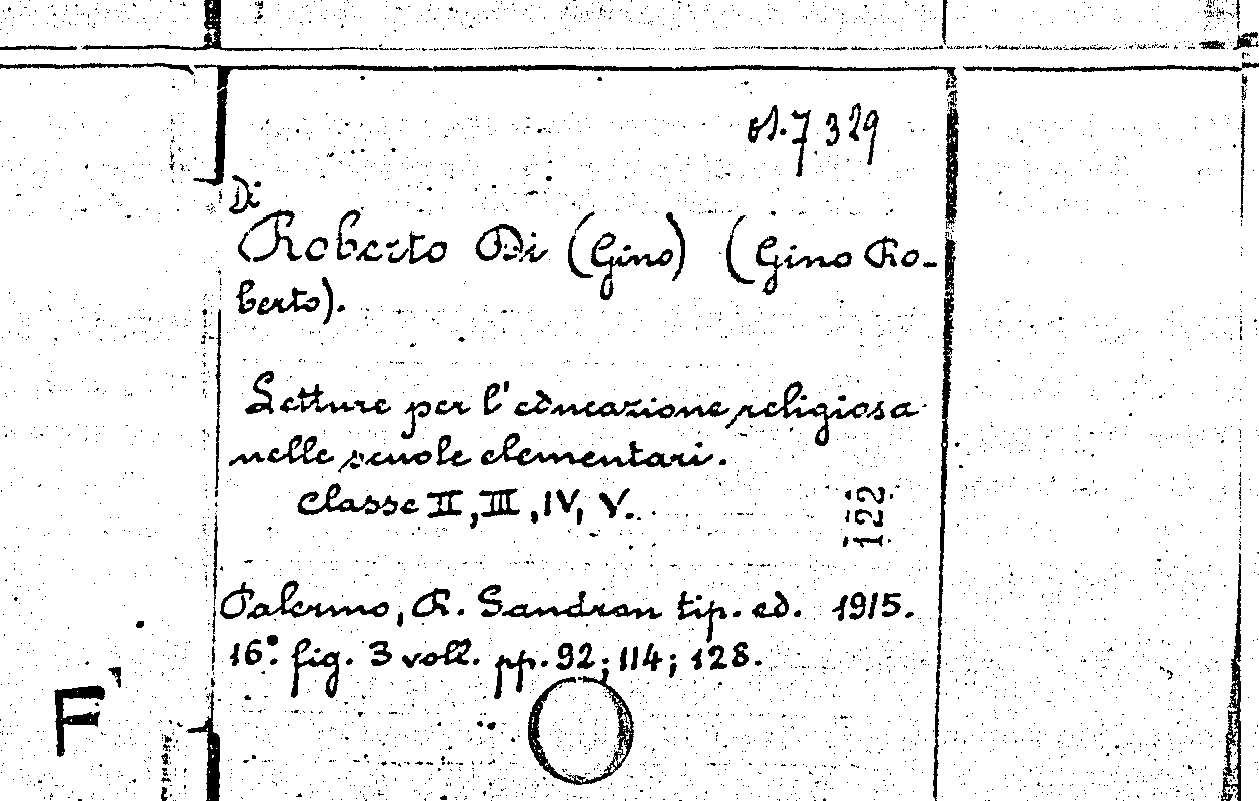 7 329
Di
Roberto Di (Gino) (Gino Ro-
berto).
Letture per l'educazione religiosa
nelle scuole elementari.
Classe II, III, IV, V.
122
Palermo, R. Sandron tip. ed. 1915.
16º. fig. 3 voll. pp. 92; 114; 128.
F